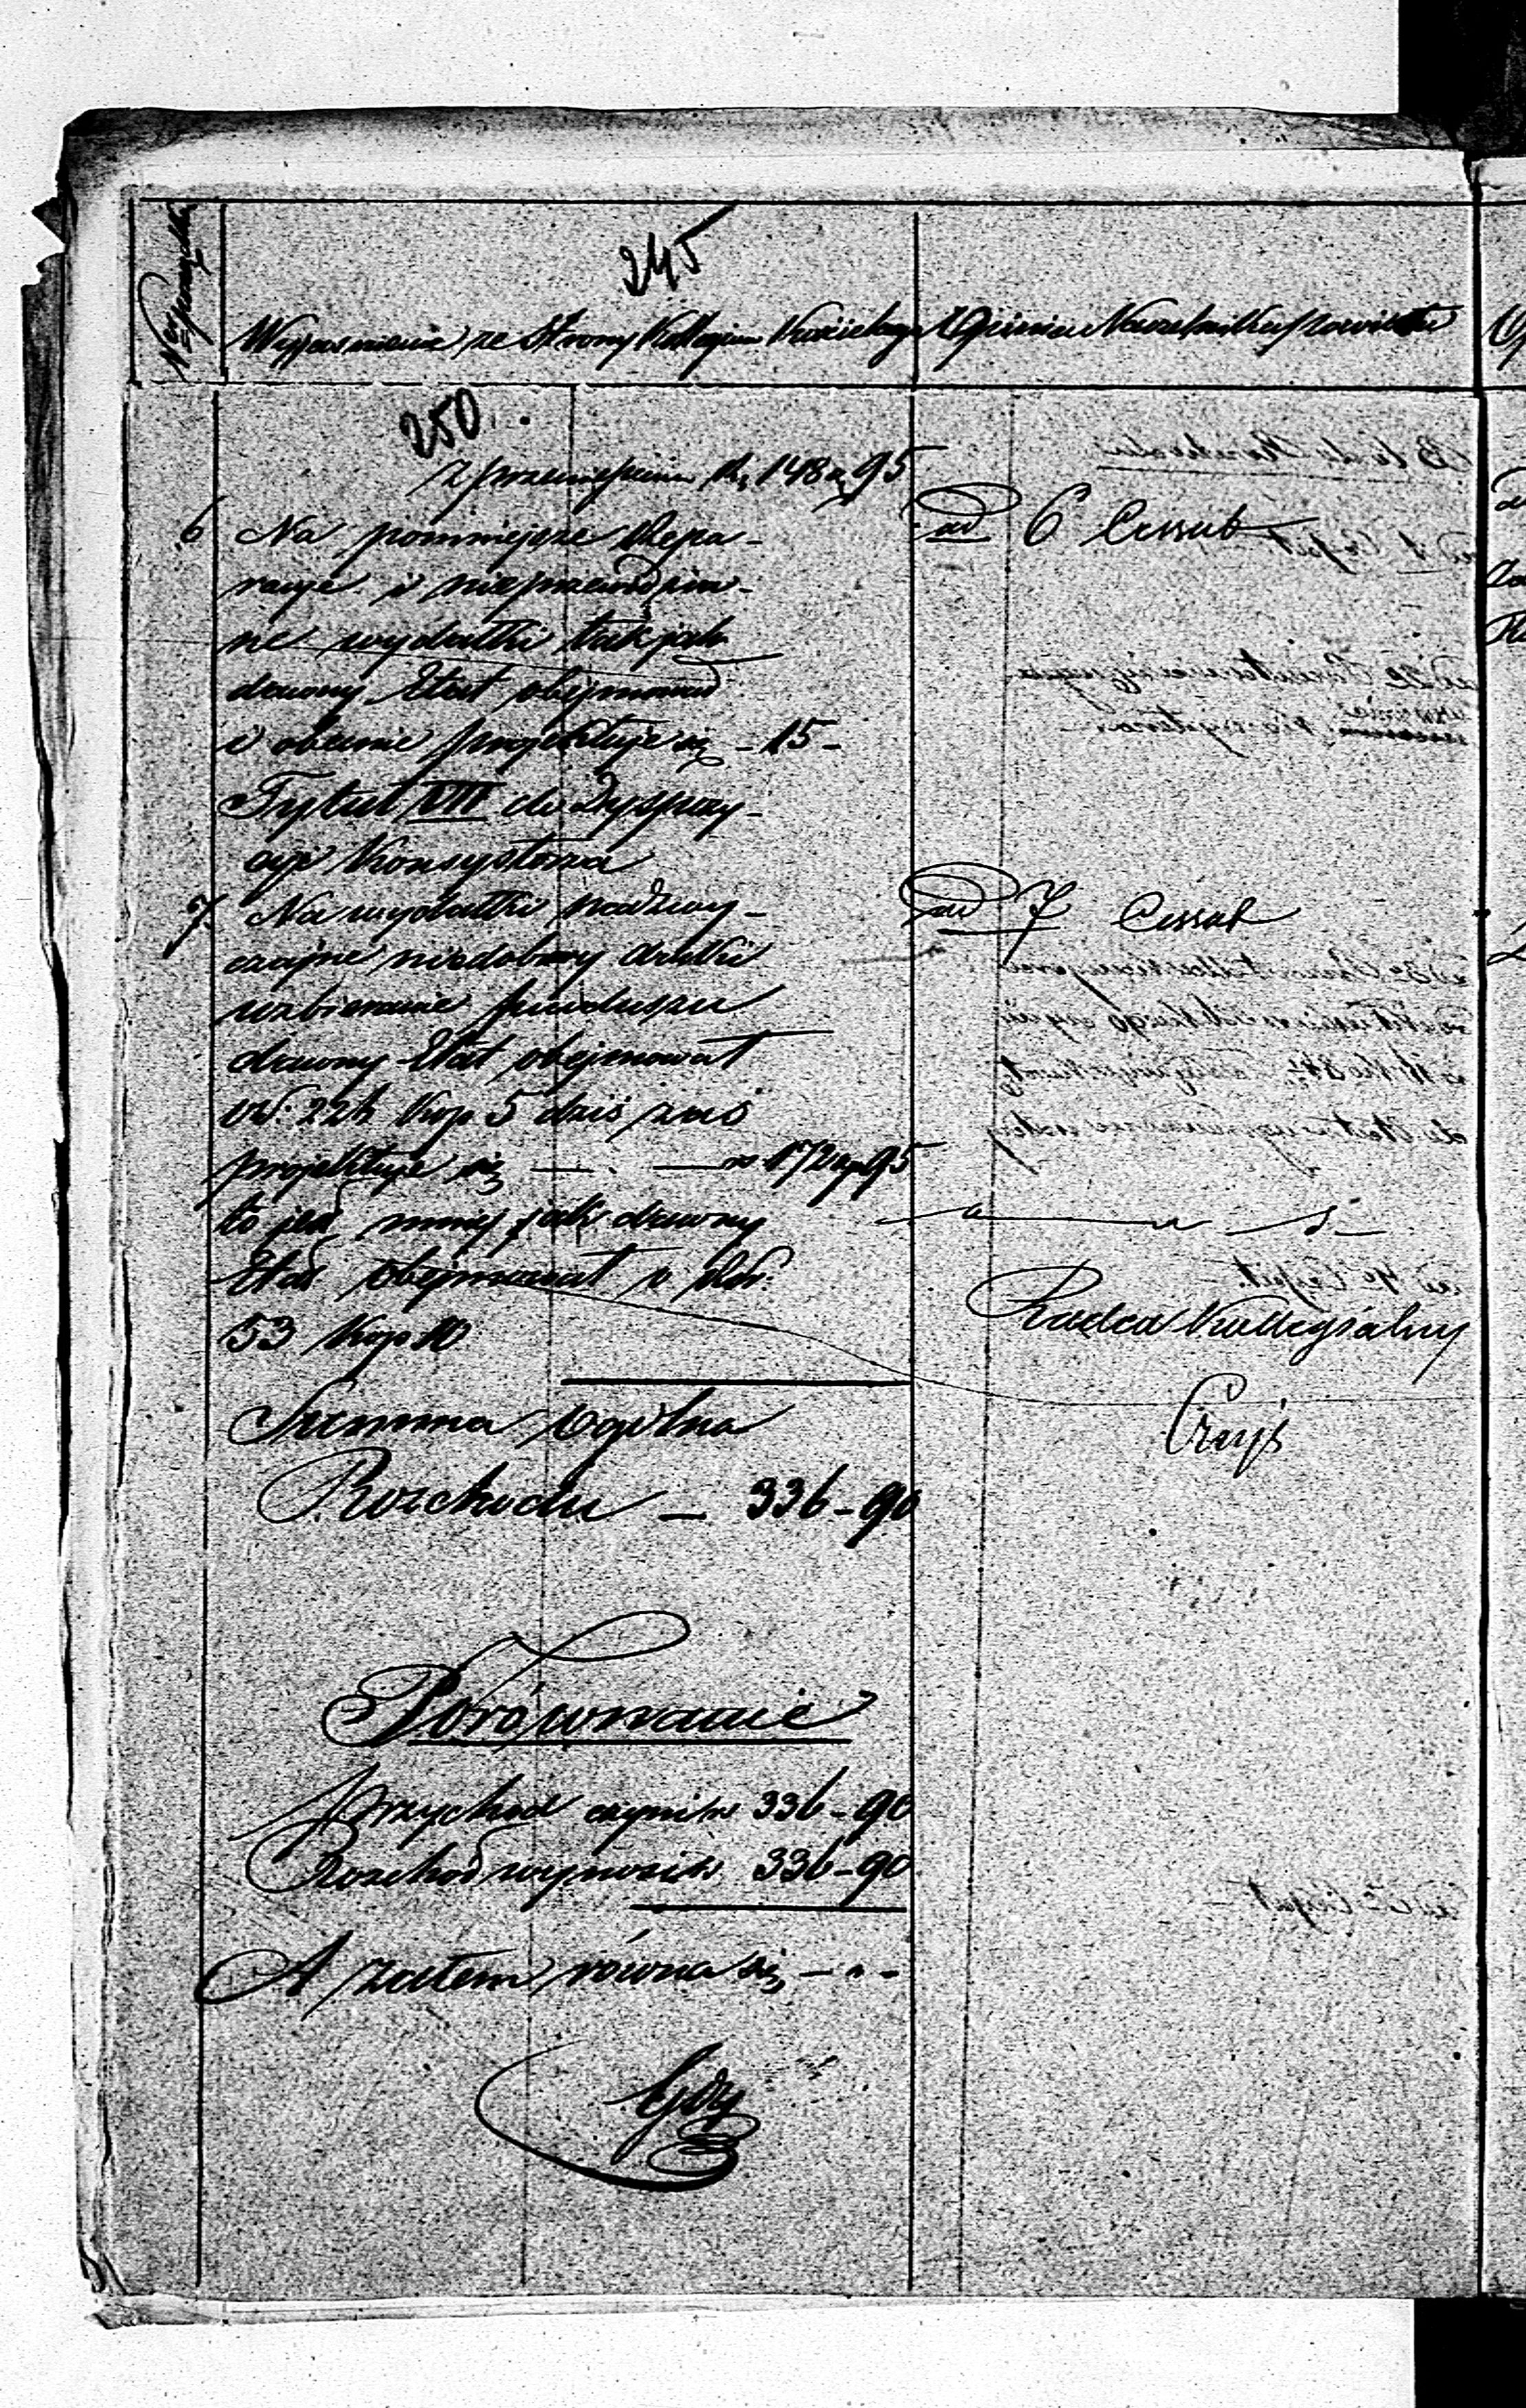 245
Nr porządku
Wyjaśnienie ze Strony Kollegium Kościelnego
Opinia Naczelnika Powiatu
250
z przeniesienia Rs 148 k 95
6 Na pomniejsze Repa-
racye i nieprzewidzia-
ne wydatki tak jak
dawny Etat obejmował
i obecnie projektuje się - 15 -
Tytuł VII do Dyspozy-
cyi Konsystorza
7. Na wydatki nadzwy-
czajne niedobory druki
uzbieranie funduszu
dawny Etat obejmował
rs. 226 Kop 5 dziś zaś
projektuje się — . — rs 172 kp 95
to jest mniej jak dawny
Etat obejmował o rsr.
53 Kop 10
Summa Ogólna
Rozchodu — 336 - 90
Porównanie
Przychód czyni rs 336 - 90
Rozchód wynosi rs 336 - 90
A zatem równa się - " -
ad 6 Cessat
ad 7 Cessat
Radca Kollegialny